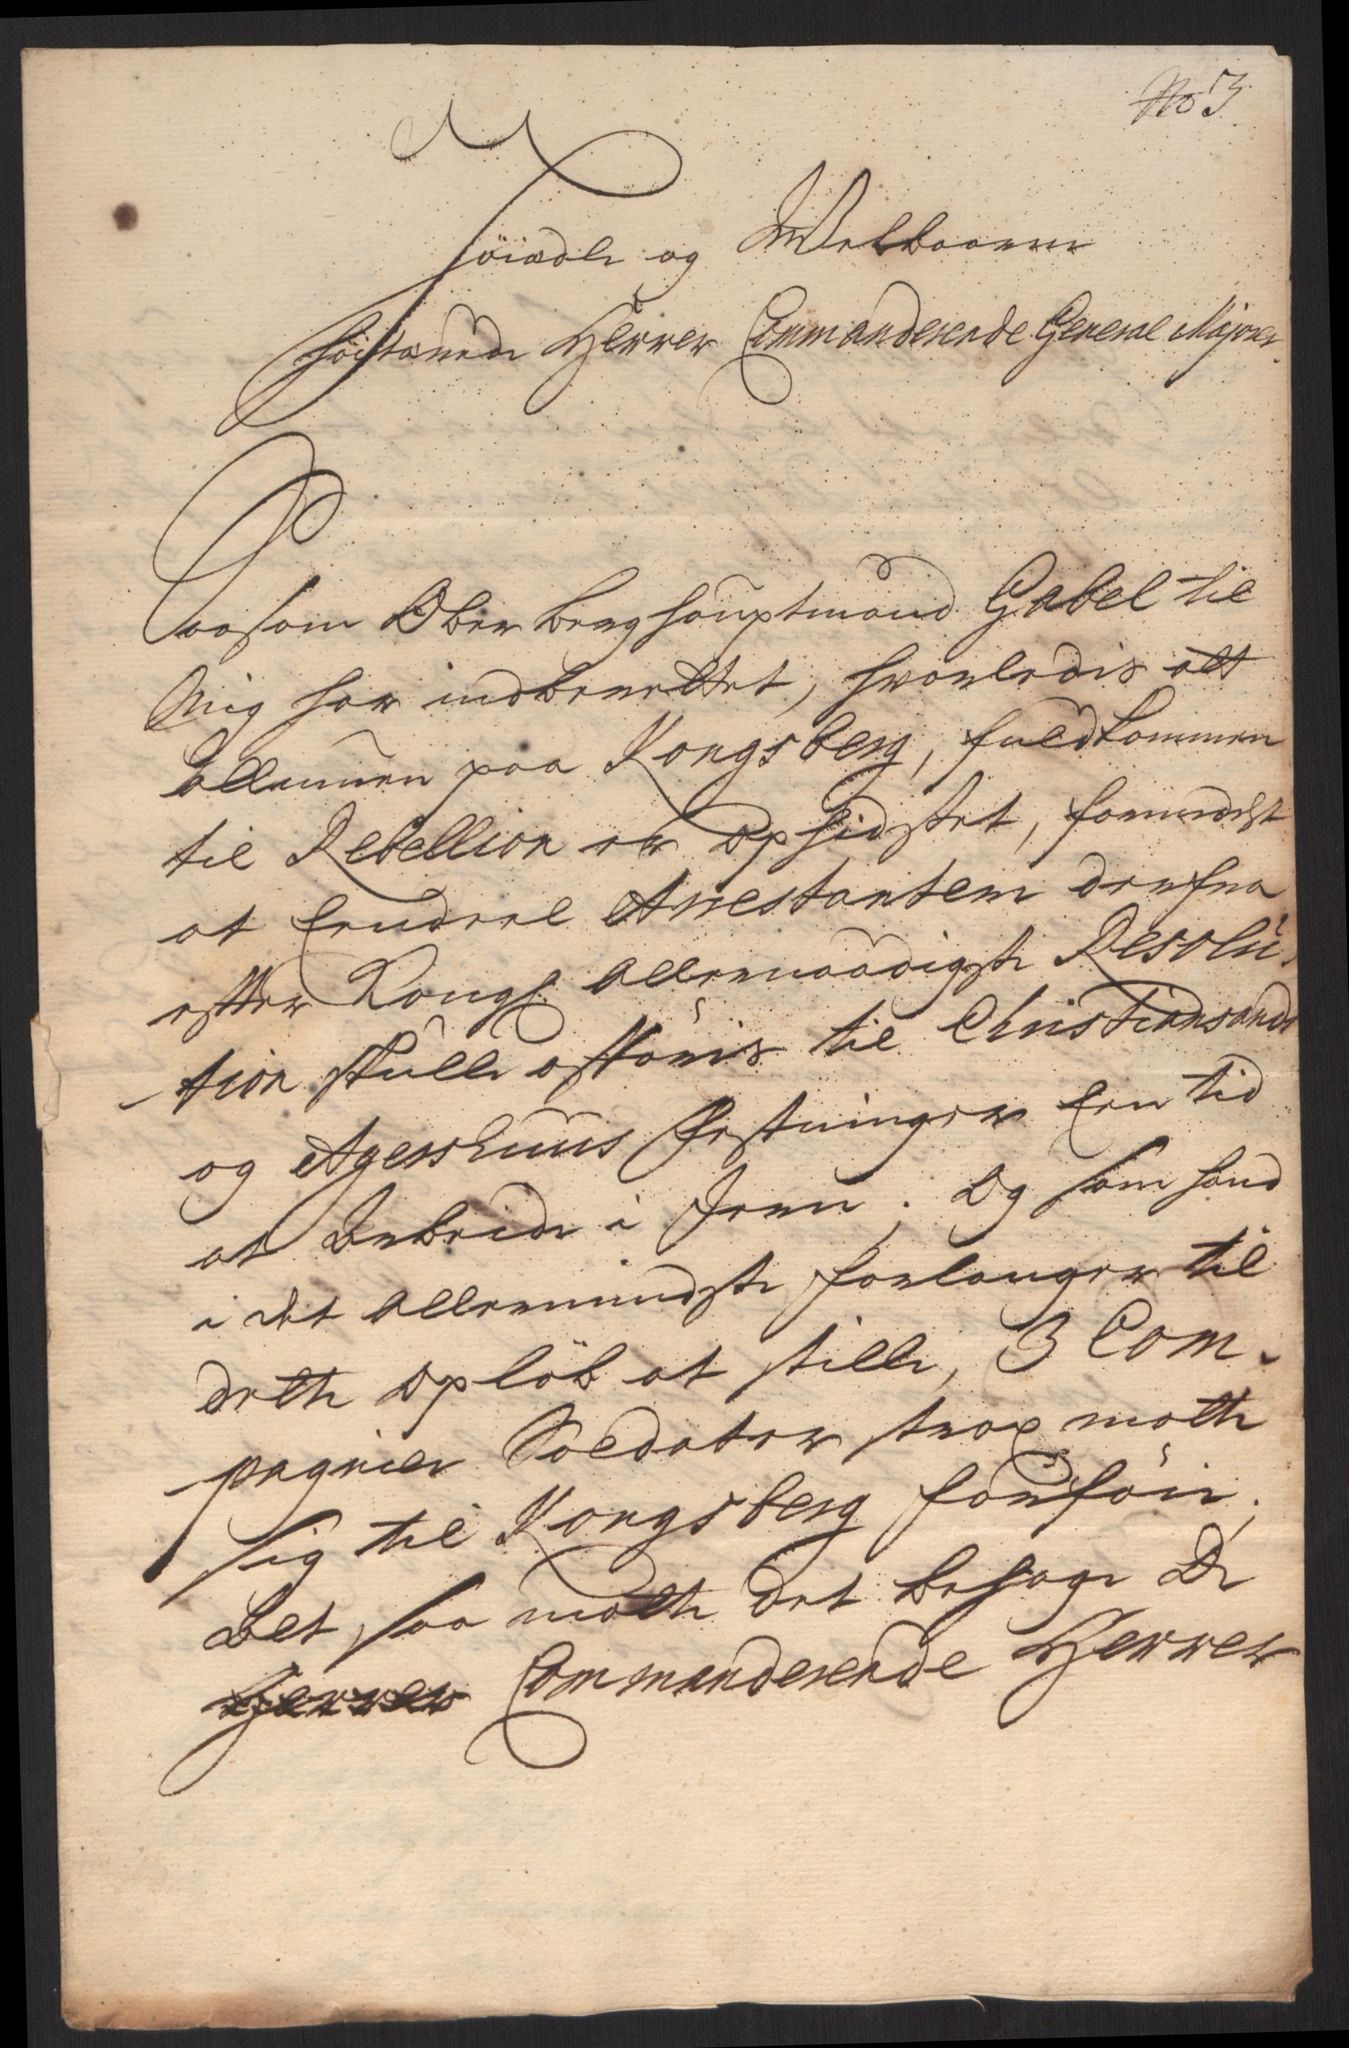 No 3
Høiædle og Welbaarne
Høistærede Herrer Commanderende General Major.
Saasom Oberberghauptmand Gabel til
Mig har indberettet, hvorledis alt
Allmuen paa Kongsberg, fuldkommen
til Rebellion er ophidset, formedelst
at Arrestanterne derfra
effter Kongl. Allernaadigste Resolu-
tion skulle afføris til Christiansands
og Agershuus Festninger Een tid
at Arbeide i Jern; Og som hand
i det Allermindste forlanger til
dette opløb at stille, 3 Com-
pagnier Soldater strax motte
sig til Kongsberg forføie;
Det, saa motte det behage De
Herrer Commanderende Herrer